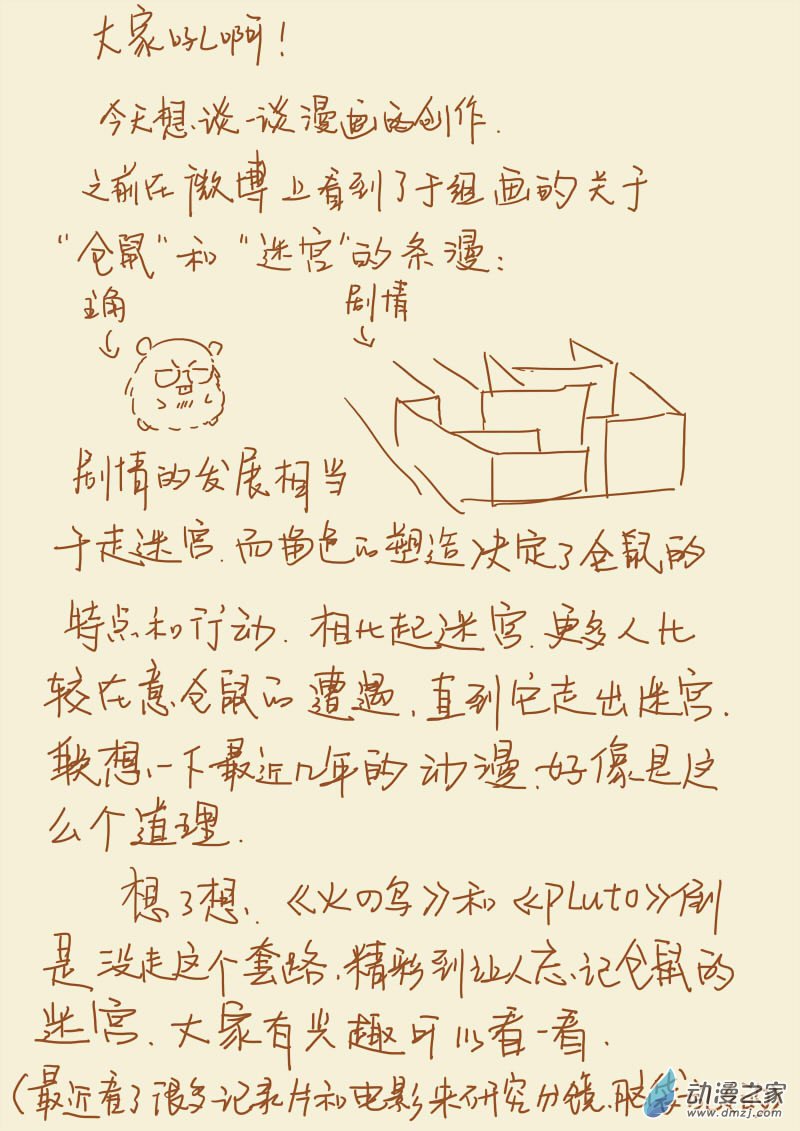 大家好啊！
今天想谈一谈漫画的创作.
之前在微博上看到了于组画的关于
“仓鼠”和“迷宫”的条漫：
主角
剧情
剧情的发展相当
于走迷宫.而角色的塑造决定了仓鼠的
特点和行动.相比起迷宫.更多人比
较在意仓鼠的遭遇,直到它走出迷宫.
联想一下最近几年的动漫.好像是这
么个道理.
想了想.《火の鸟》和《PLuto》倒
是没走这个套路.精彩到让人忘记仓鼠的
迷宫.大家有兴趣可以看一看.
(最近看了很多记录片和电影来研究分镜.脑袋
动漫之家
www.dmzj.com